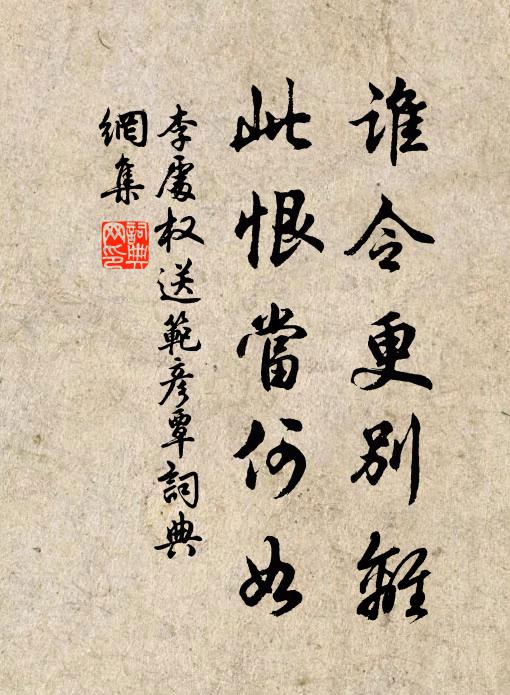 谁令更别離
此恨當何如
李處权送範彦覃詞典
網集
詞典网印